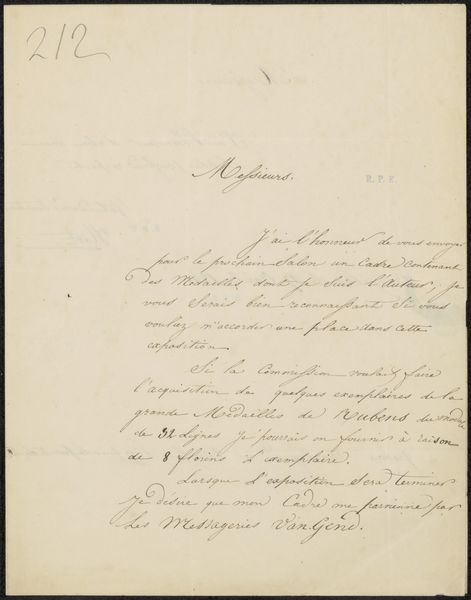 212
Messieurs.
R.P.K.
J'ai l'honneur de vous envoyer
pour le prochain Salon un Cadre contenant
des Medailles dont je suis l'Auteur, je
vous serais bien reconnaissant si vous
vouluz m'accorder une place dans cette
exposition.
Si la Commission voulait faire
l'acquisition de quelques exemplaires de la
grande Medailles de Rubens du modul
de 32 Lignes je pourrais en fournir à raison
de 8 florins L'exemplaire.
Lorsque L'exposition sera terminer
Je désire que mon Cadre me parvienne par
Les Messageries Van Gend.